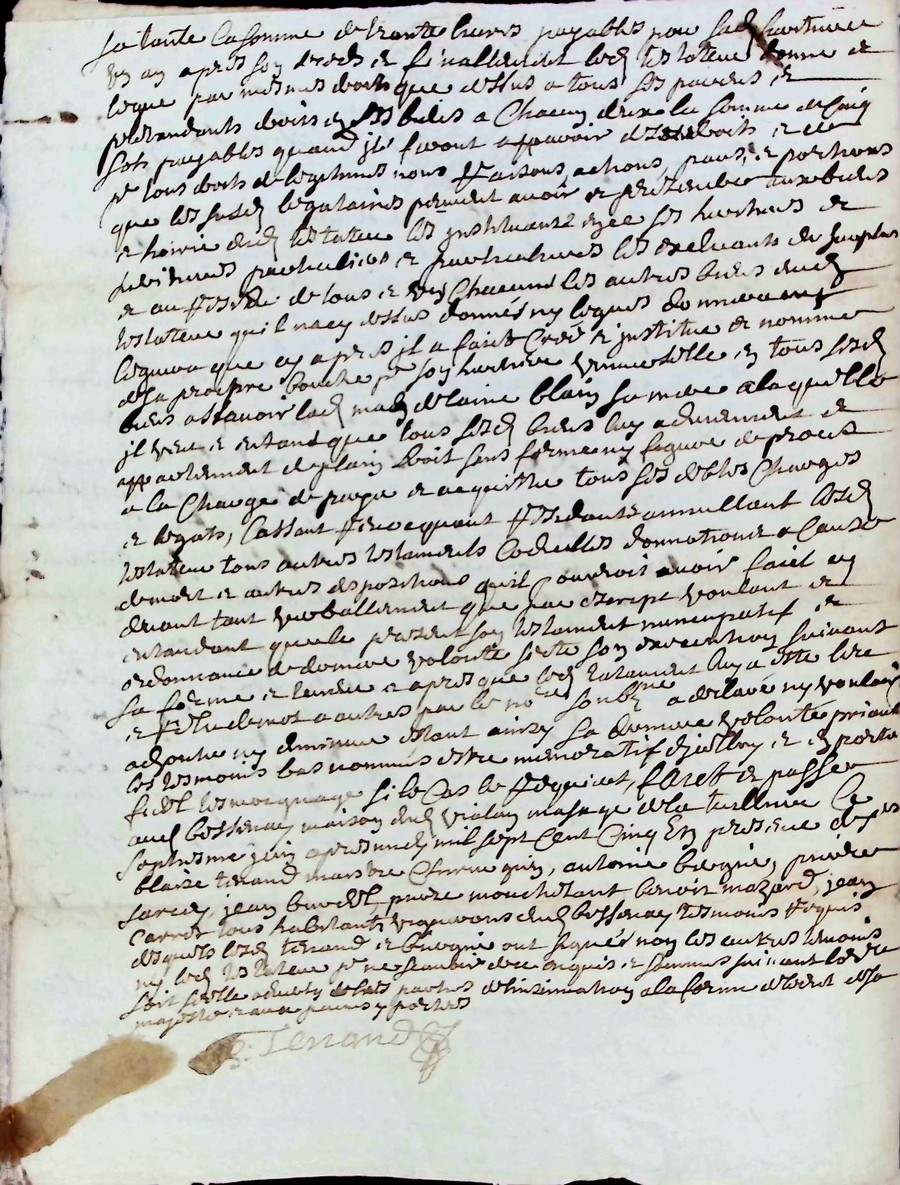 sa tante la somme de trente livres payables par sad heritiere
un an apres son deces et finallement led testateur donne et
legue par mesmes droits que dessus a tous ses parens et
pretendants droits en ses biens a chacun deux la somme de cinq
sols payables quand ils feront apparoir de leurs droits et ce
pr tous droits de legitimes noms raisons actions, pars, et portions
que les susd legataires peuvent avoir et pretendre aux biens
et hoirie dud testateur les instituant en ce ses heritiers et
particuliers et particulieres les excluants du surplus
et au residu de tous et un chacuns les autres biens dud
testateur quil na cy dessus donnés ny legués donnera ny
leguera que cy apres il a fait creé et institue et nomme
de sa propre bouche pr son heritiere universelle en tous sesd
biens assavoir lad madelaine blain sa mere a laquelle
il veut et entand que tous sesd biens luy adviennent et
appartiennent de plain droit sens forme ny figure de proces
a la charge de payer et acquitter tous ses debtes charges
et legats, cassant revocquant et annullant lesd
testateur tous autres testaments codicilles donnations a cause
de mort et autres dispositions quil pourroit avoir fait cy
devant tant verballement que par escript voulant et
entandant que le present son testament nuncupatif et
ordonnance de derniere volonté sorte son execution suivant
sa forme et teneur et apres que led testament luy a esté lire
et de mot a autres par le nore soubne a declaré ny vouloir
adjouter ny diminuer estant ainsy sa derniere volonté priant
les tesmoins bas nommés estre memoratif dicelluy et en porter
fidel tesmoignage si le cas le requiert, faict et passé
aud bessenay maison dud violay masage de la tuilliere le
septiesme juin apres midy mil sept cent cinq en presence de
blaise tenand maistre chirurgien, antoine biergié,
jean mouchetant benoit mazard, jean
carret tous habitants vignerons dud bessenay tesmoins requis
desquels lesd tenand et biergié ont signés non les autres tesmoins
ny led testateur pr ne scavoir de ce enquis et sommés suivant lordce
soit scellé par les parties et insinuation a la forme de ledit de sa
majesté et aux peines y portées
B. Tenand